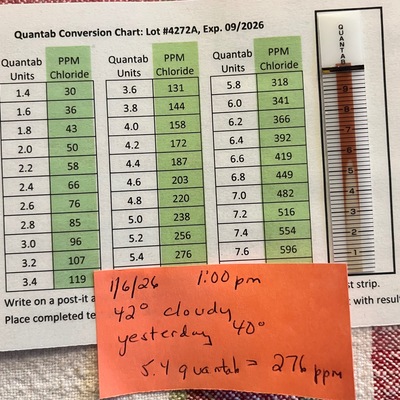 Quantab Conversion Chart: Lot #4272A, Exp. 09/2026
Quantab Units PPM Chloride Quantab Units PPM Chloride Quantab Units PPM Chloride
1.4 30 3.6 131 5.8 318
1.6 36 3.8 144 6.0 341
1.8 43 4.0 158 6.2 366
2.0 50 4.2 172 6.4 392
2.2 58 4.4 187 6.6 419
2.4 66 4.6 203 6.8 449
2.6 76 4.8 220 7.0 482
2.8 85 5.0 238 7.2 516
3.0 96 5.2 256 7.4 554
3.2 107 5.4 276 7.6 596
3.4 119
QUANTAB
9
8
7
6
5
4
3
2
1
Write on a post-it a
st strip.
Place completed te
with result
1/6/26 1:00 pm
42° cloudy
yesterday 40°
5.4 quantab = 276 ppm